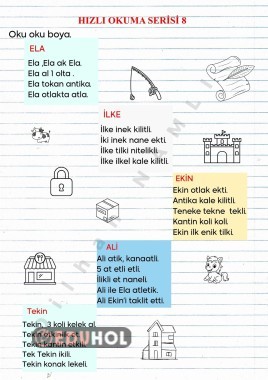 HIZLI OKUMA SERİSİ 8
Oku oku boya.
ELA
Ela ,Ela ak Ela.
Ela al 1 olta .
Ela tokan antika.
Ela otlakta atla.
İLKE
İlke inek kilitli.
İki inek nane ekti.
İlke tilki nitelikli.
İlke ilkel kale kilitli.
EKİN
Ekin otlak ekti.
Antika kale kilitli.
Teneke tekne tekli.
Kantin koli koli.
Ekin ilk enik tilki.
ALİ
Ali atik, kanaatli.
5 at etli etli.
İlikli et naneli.
Ali ile Ela atletik.
Ali Ekin'i taklit etti.
Tekin
Tekin, 3 koli kelek al.
Tekin
Tekin kantin ekili.
Tek Tekin ikili.
Tekin konak lekeli.
EDUHOL